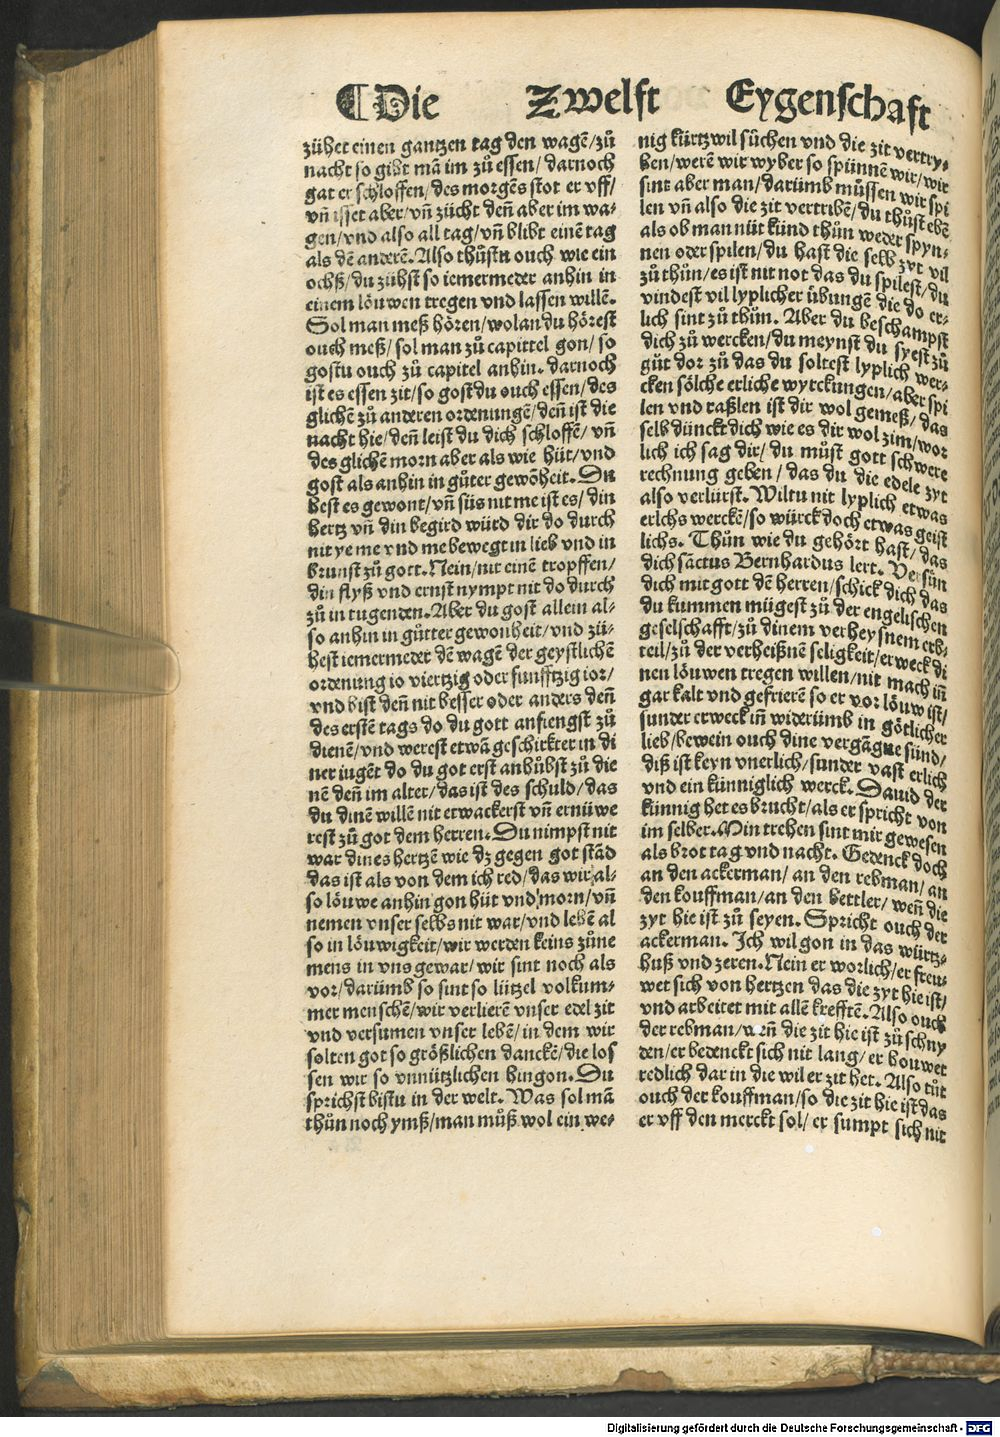 ¶ Die Zwelft Eygenschaft
zühet einen gantzen tag den wagē/zů
nacht so gibt mā im zů essen/ darnoch
gat er schloffen/ des morgēs stot er vff/
vñ isset aber/vñ zücht deñ aber im wa-
gen/vnd also all tag/vñ blibt einē tag
als dē anderē. Also thůstu ouch wie ein
ochß/du zühst so iemermeder anhin in
einem löuwen tregen vnd lassen willē.
Sol man meß hören/wolan du hörest
ouch meß/ sol man zů capittel gon/ so
gostu ouch zů capitel anhin. darnoch
ist es essen zit/so gost du ouch essen/des
glichē zů anderen ordenungē/deñ ist die
nacht hie/deñ leist du dich schloffē/ vñ
des glichē morn aber als wie hüt/vnd
gost als anhin in gůter gewōheit. Du
best es gewont/vñ süs nit me ist es/ din
hertz vñ din begird würd dir do durch
nit ye me vnd me bewegt in lieb vnd in
brunst zů gott. Nein/nit einē tropffen/
din flyß vnd ernst nympt nit do durch
zů in tugenden. Aber du gost allein al-
so anhin in gůtter gewonheit/vnd zü-
hest iemermeder dē wagē der geystlichē
ordenung io viertzig oder funfftzig ior/
vnd bist deñ nit besser oder anders deñ
des erstē tags do du gott anfiengst zů
dienē/vnd werest etwā geschickter in di
ner iugēt do du got erst anhůbst zů die
nē deñ im alter/das ist des schuld/das
du dinē willē nit erwackerst vñ ernüwe
rest zů got dem herren. Du nimpst nit
war dines hertzē wie dz gegen got stād
das ist als von dem ich red/das wir al-
so löuwe anhin gon hüt vnd morn/vñ
nemen vnser selbs nit war/vnd lebē al
so in löuwigkeit/wir werden keins zůne
mens in vns gewar/wir sint noch als
vor/darümb so sint so lützel volkum-
mer menschē/wir verlierē vnser edel zit
vnd versumen vnser lebē/in dem wir
solten got so größlichen danckē/die los
sen wir so vnnützlichen hingon. Du
sprichst bistu in der welt. Was sol mā
thůn noch ymß/man můß wol ein we-
nig kürtzwil sůchen vnd die zit vertry-
ben/werē wir wyber so spünnen wir/wir
sint aber man/darümb můssen wir spi
len vñ also die zit vertribē/du thůst ebē
als ob man nüt künd thůn weder spyn-
nen oder spilen/du hast die selb zyt vil
zů thůn/es ist nit not das du spilest/du
vindest vil lyplicher übungē die do er-
lich sint zů thůn. Aber du beschampst
dich zů wercken/du meynst du syest zů
gůt dor zů das du soltest lyplich wer-
cken sölche erliche wyrckungen/aber spi
len vnd raßlen ist dir wol gemeß/ das
selb dünckt dich wie es dir wol zim/wor
lich ich sag dir/ du můst gott schwere
rechnung geben/ das du die edele zyt
also verlürst. Wiltu nit lyplich etwas
erlchs werckē/so würck doch etwas geist
lichs. Thůn wie du gehört hast/ das
dich sāctus Bernhardus lert. Versün
dich mit gott dē herren/schick dich das
du kummen mügest zů der engelischen
geselschafft/zů dinem verheysnem erb-
teil/zů der verheißnē seligkeit/erweck di
nen löuwen tregen willen/nit mach iñ
gar kalt vnd gefrierē so er vor löuw ist/
sunder erweck iñ widerümb in götlicher
lieb/bewein ouch dine vergāgne sünd/
diß ist keyn vnerlich/sunder vast erlich
vnd ein künniglich werck. Dauid der
künnig het es brucht/als er spricht von
im selber. Min trehen sint mir gewesen
als brot tag vnd nacht. Gedenck doch
an den ackerman/ an den rebman/ an
den kouffman/an den bettler/ weñ die
zyt hie ist zů seyen. Spricht ouch der
ackerman. Ich wil gon in das würtz-
huß vnd zeren. Nein er worlich/er freu-
wet sich von hertzen das die zyt hie ist/
vnd arbeitet mit allē krefftē. Also ouch
der rebman/weñ die zit hie ist zů schny
den/er bedenckt sich nit lang/ er bouwet
redlich dar in die wil er zit het. Also tůt
ouch der kouffman/so die zit hie ist das
er vff den merckt sol/ er sumpt sich nit
Digitalisierung gefördert durch die Deutsche Forschungsgemeinschaft - DFG